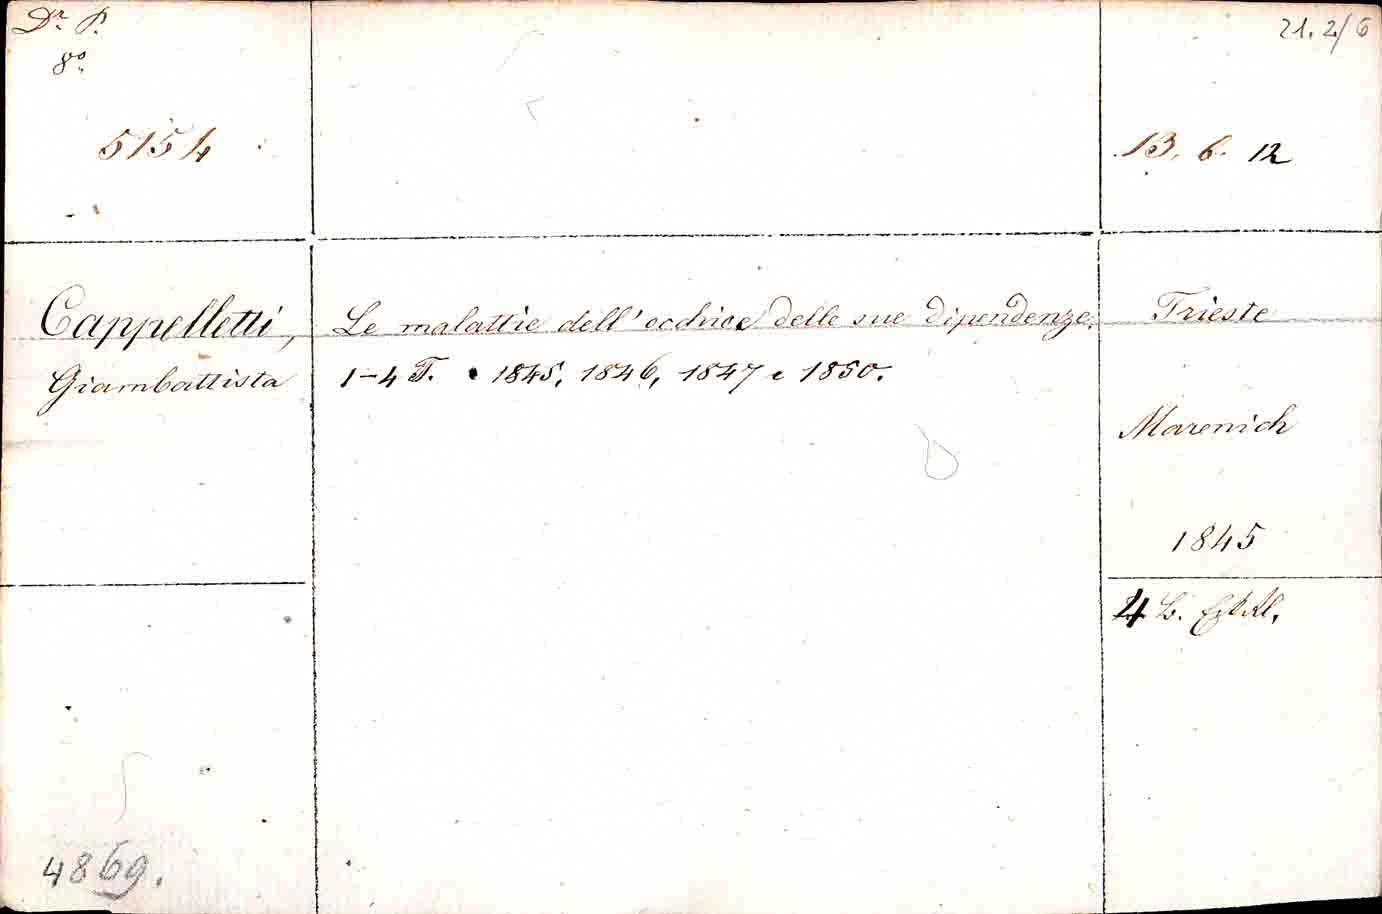 Dr. P.
8º
5154
21. 2/6
13. 6. 12
Cappelletti,
Giambattista
Le malattie dell'occhio e delle sue dipendenze.
1-4 T. 1845, 1846, 1847 e 1850.
Trieste
Marenich
1845
4 L.
4869.